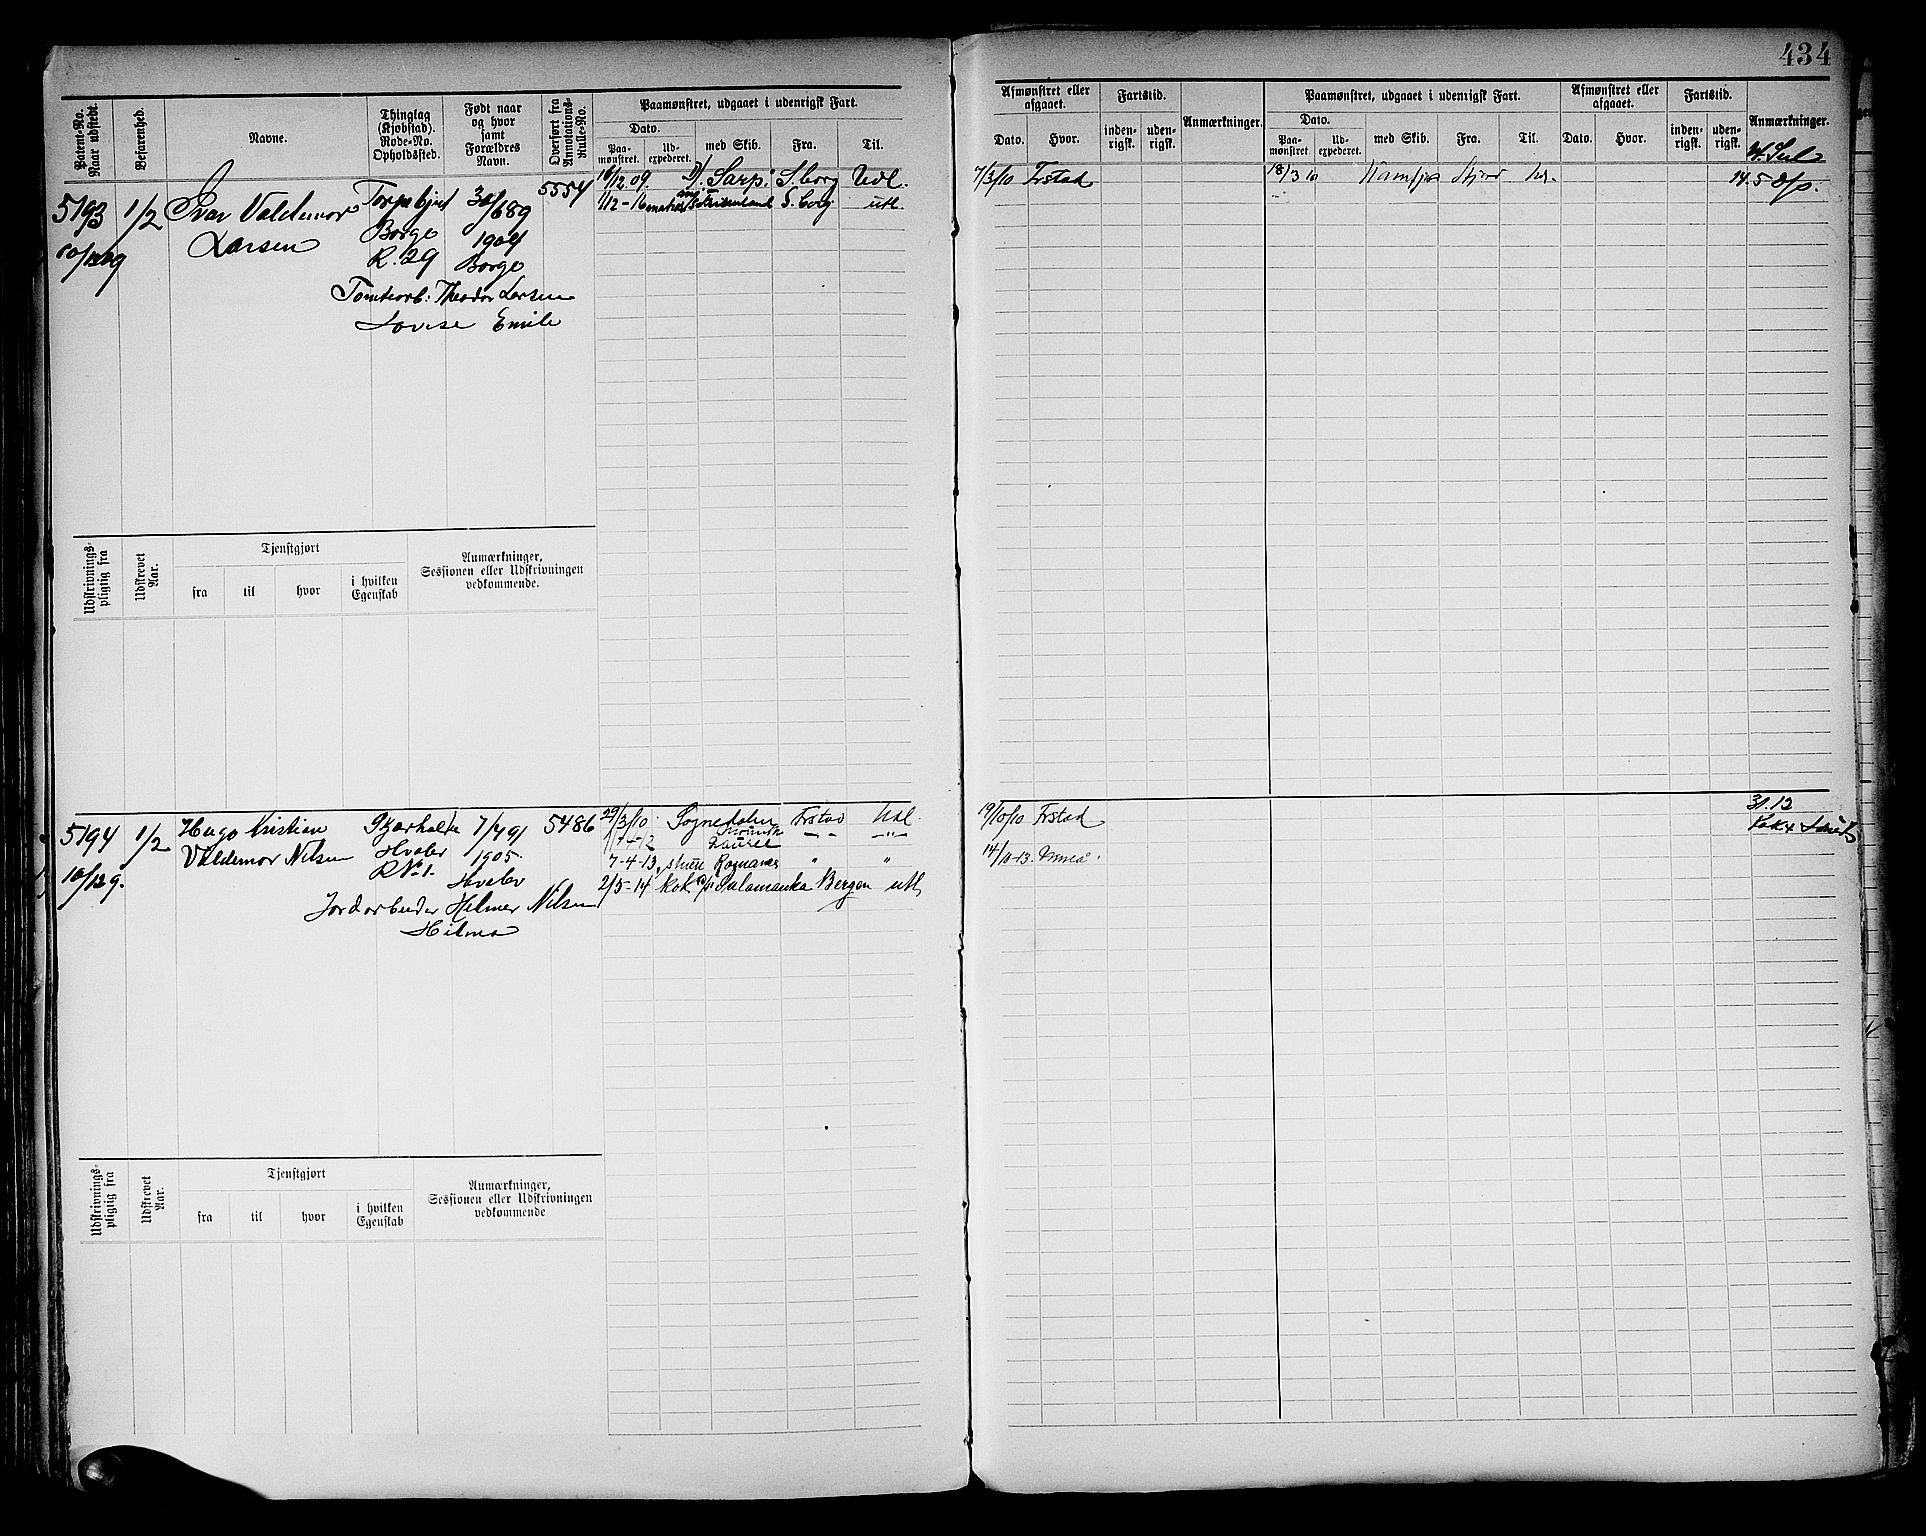 434
Patent-No. Naar udstedt.
Befarenhed.
Navne.
Thinglag (Kjøbstad). Rode-No. Opholdssted.
Født naar og hvor samt Forældres Navn.
Overført fra Annotations-Rulle-No.
Paamønstret, udgaaet i udenrigsk Fart.
Dato.
Paa-mønstret.
Ud-expederet.
med Skib.
Fra.
Til.
5193 1/2 Ivar Valdemar Torpebjut 30/6 89 5554
10/12 09 Larsen Borge 1904
R. 29 Borge
Tomtearb: Theodor Larsen
Lovise Emile
16/12 09. Sarp. S.borg Udl.
1/12-16 S.borg utl.
Udskrivnings-pligtig fra
Udskrevet Aar.
Tjenstgjort
fra til hvor i hvilken Egenskab
Anmærkninger, Sessionen eller Udskrivningen vedkommende.
5194 1/2 Hugo Kristian 7/4 91 5486
10/12 9. Valdemar Nilsen Hvaler 1905.
R No 1. Hvaler
Jordarbeider Helmer Nilsen
Hilma
29/3/10 Sognedalen Frstad Udl.
7-4-13 Romanas " "
2/5-14 kok Salamanka Bergen utl
Udskrivnings-pligtig fra
Udskrevet Aar.
Tjenstgjort
fra til hvor i hvilken Egenskab
Anmærkninger, Sessionen eller Udskrivningen vedkommende
Afmønstret eller afgaaet.
Dato. Hvor.
Fartstid.
inden-rigsk. uden-rigsk.
Anmærkninger.
Paamønstret, udgaaet i udenrigsk Fart.
Dato.
Paa-mønstret
Ud-expederet.
med Skib. Fra. Til.
Afmønstret eller afgaaet.
Dato. Hvor.
Fartstid.
inden-rigsk. uden-rigsk.
Anmærkninger.
7/3/10 Frstad 18/3 10 14.5
19/10/10 Frstad 31.12
14/11-13.